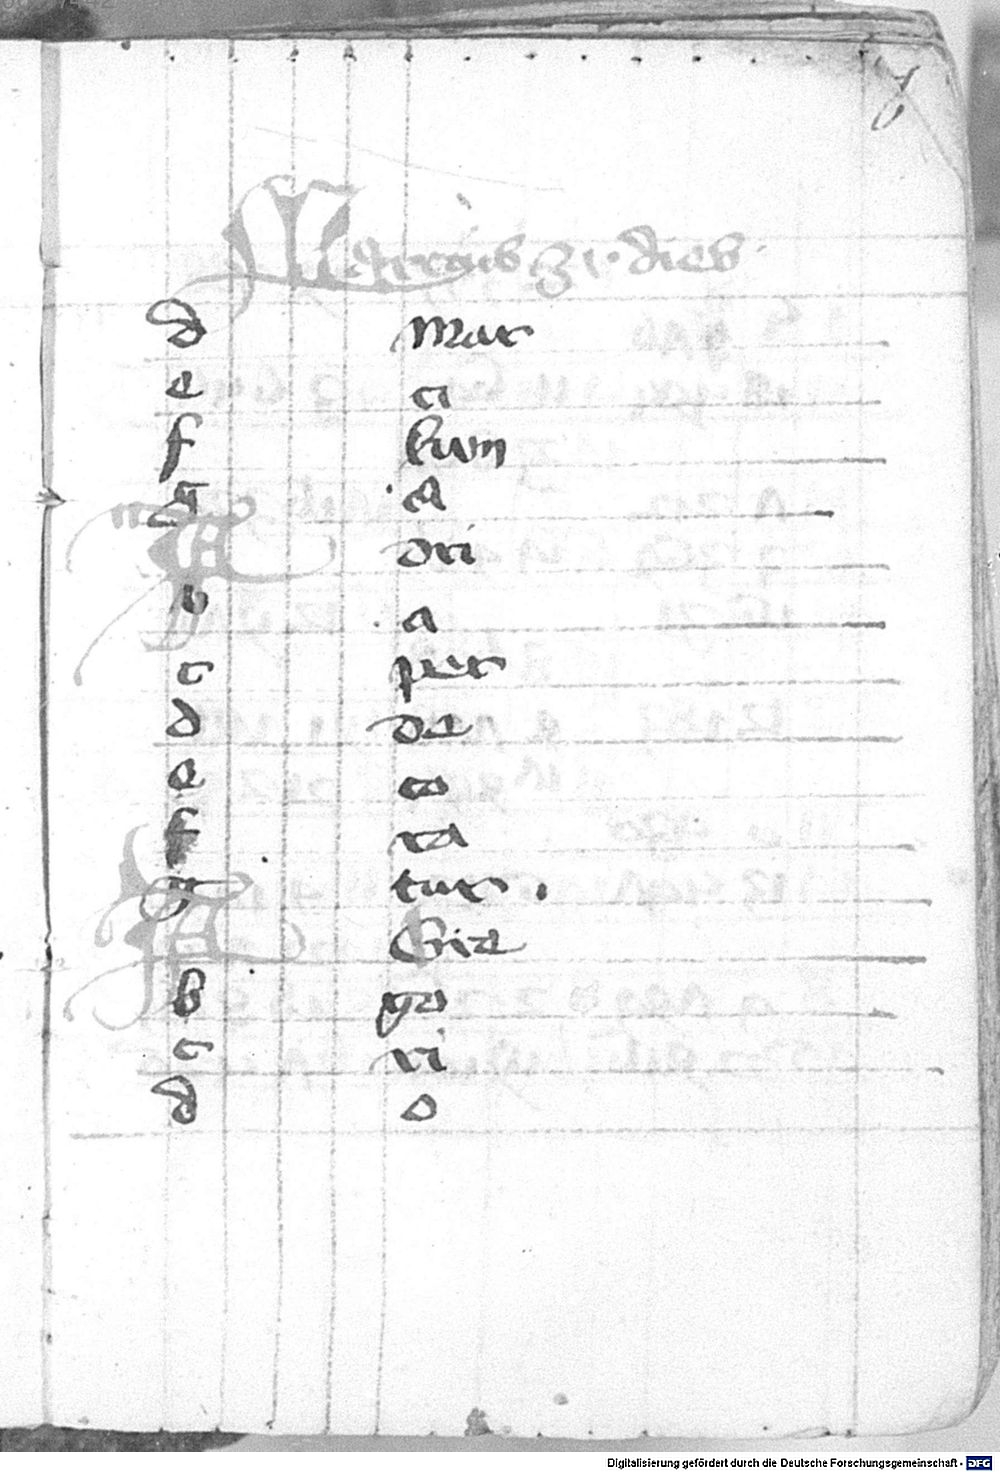 Marcius 31 dies
d mar
e ci
f kum
g a
A dri
b a
c per
d de
e co
f ra
g tur
A Gre
b go
c ri
d o
Digitalisierung gefördert durch die Deutsche Forschungsgemeinschaft - DFG